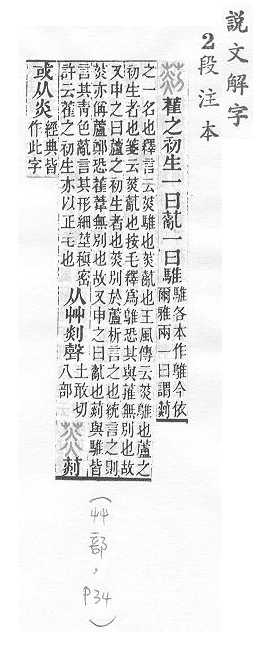 說文解字
2段注本
𦵹 雚之初生一曰薍一曰鵻 鵻各本作騅今依
爾雅兩一曰謂𦵹
之一名也釋言云菼鵻也菼薍也王風傳云菼鵻也蘆之
初生者也箋云菼薍也按毛釋爲鵻恐其與萑無別也故
又申之曰蘆之初生者也菼別於蘆析言之也統言之則
菼亦偁蘆鄭恐萑葦無別也故又申之曰薍也𦵹與鵻皆
言其靑色薍言其形細莖稹密
許云雚之初生亦以正毛也 从艸剡聲 土敢切
八部 菼 𦵹
或从炎 經典皆
作此字
(艸部，P34)